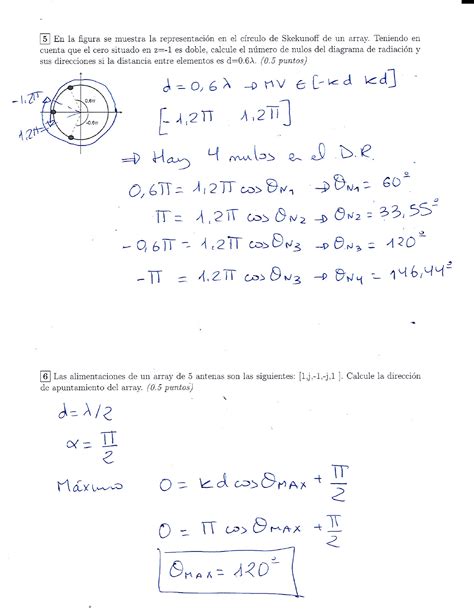 5 En la figura se muestra la representación en el círculo de Skekunoff de un array. Teniendo en
cuenta que el cero situado en z=-1 es doble, calcule el número de nulos del diagrama de radiación y
sus direcciones si la distancia entre elementos es d=0.6λ. (0.5 puntos)
d = 0,6 λ → MV ∈ [-kd kd]
-1,2π
0.6π
[-1,2π 1,2π]
-0.6π
1,2π
⇒ Hay 4 nulos en el D.R.
0,6π = 1,2π cos θN1 → θN1 = 60º
π = 1,2π cos θN2 → θN2 = 33,55º
-0,6π = 1,2π cos θN3 → θN3 = 120º
-π = 1,2π cos θN3 → θN4 = 146,44º
6 Las alimentaciones de un array de 5 antenas son las siguientes: [1,j,-1,-j,1 ]. Calcule la dirección
de apuntamiento del array. (0.5 puntos)
d = λ/2
α = π/2
Máximo 0 = kd cos θMAX + π/2
0 = π cos θMAX + π/2
θMAX = 120º